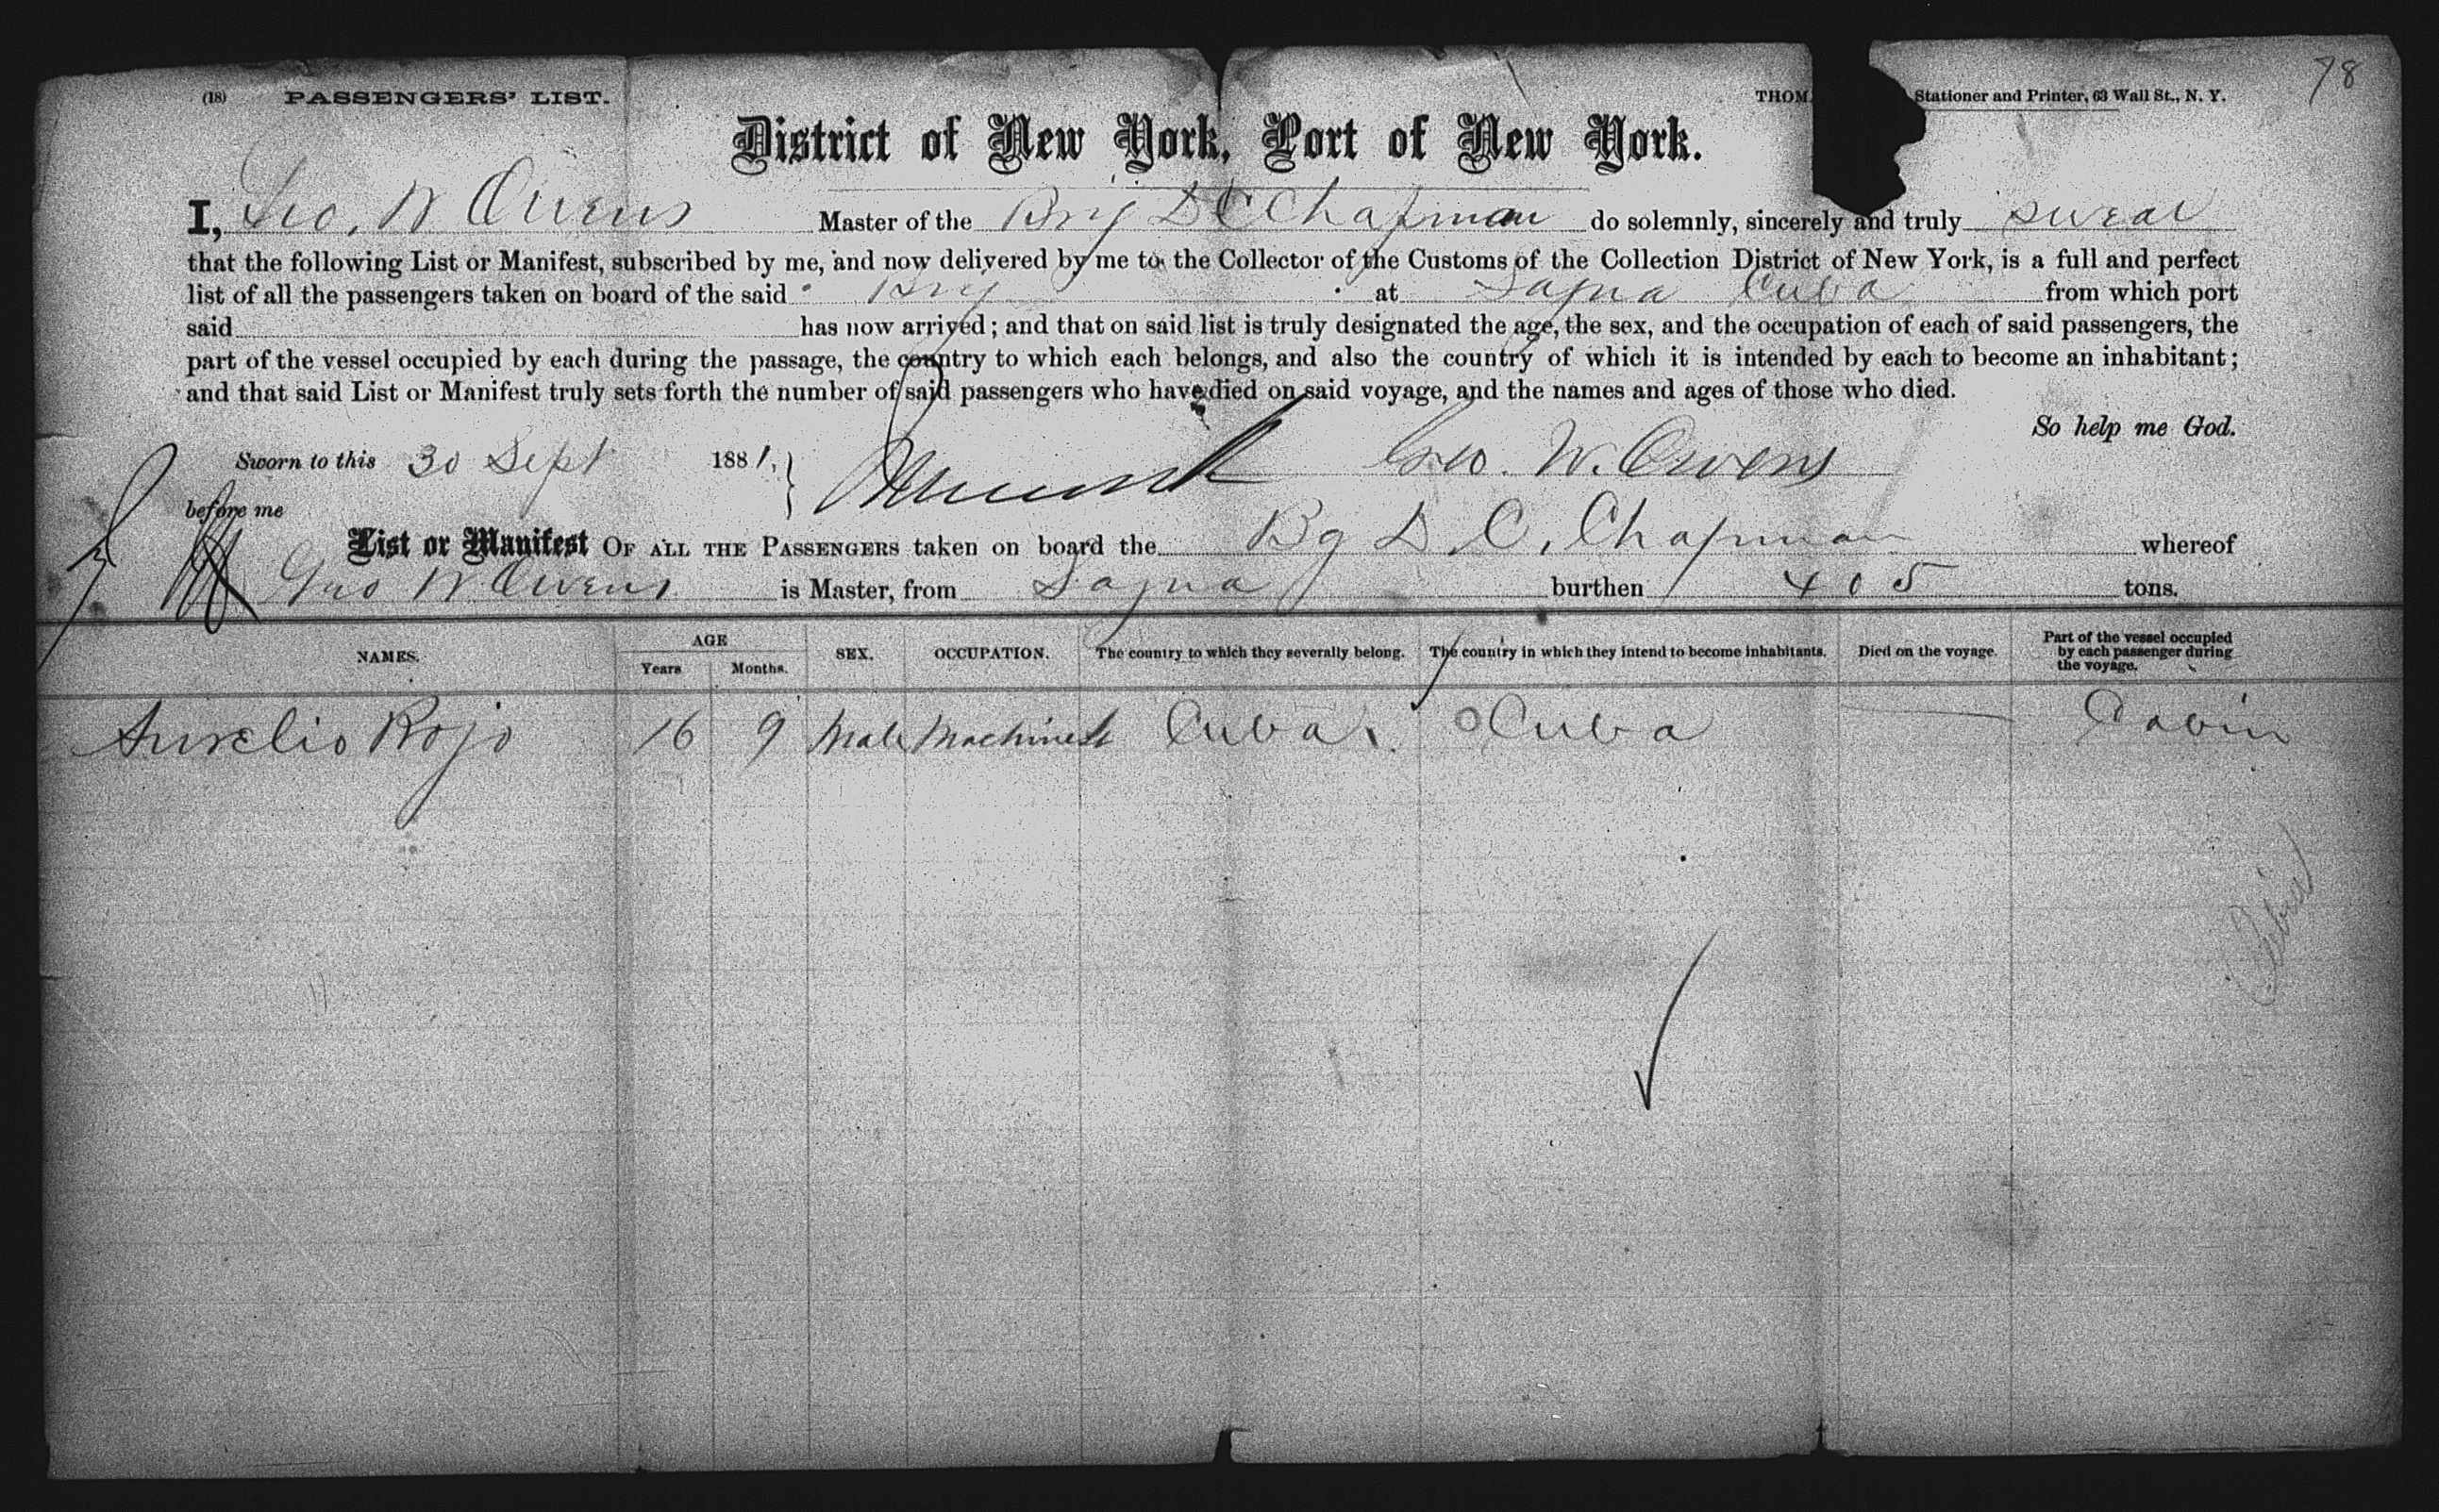 78
(18) PASSENGERS' LIST. THOM Stationer and Printer, 63 Wall St., N. Y.
District of New York, Port of New York.
I, Geo. W Owens Master of the Brig D C Chapman do solemnly, sincerely and truly swear
that the following List or Manifest, subscribed by me, and now delivered by me to the Collector of the Customs of the Collection District of New York, is a full and perfect
list of all the passengers taken on board of the said Brig at Sagua Cuba from which port
said has now arrived; and that on said list is truly designated the age, the sex, and the occupation of each of said passengers, the
part of the vessel occupied by each during the passage, the country to which each belongs, and also the country of which it is intended by each to become an inhabitant;
and that said List or Manifest truly sets forth the number of said passengers who have died on said voyage, and the names and ages of those who died.
So help me God.
Sworn to this 30 Sept 1881, Geo. W. Owens
before me
List or Manifest OF ALL THE PASSENGERS taken on board the Bg D. C. Chapman whereof
Geo W Owens is Master, from Sagua burthen 405 tons.
NAMES. AGE Years Months. SEX. OCCUPATION. The country to which they severally belong. The country in which they intend to become inhabitants. Died on the voyage. Part of the vessel occupied by each passenger during the voyage.
Aurelio Rojo 16 9 Male Machinest Cuba. Cuba Cabin